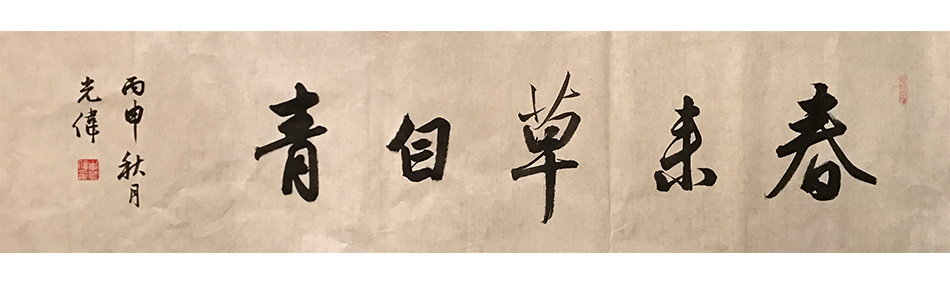 春来草自青
丙申秋月
光偉